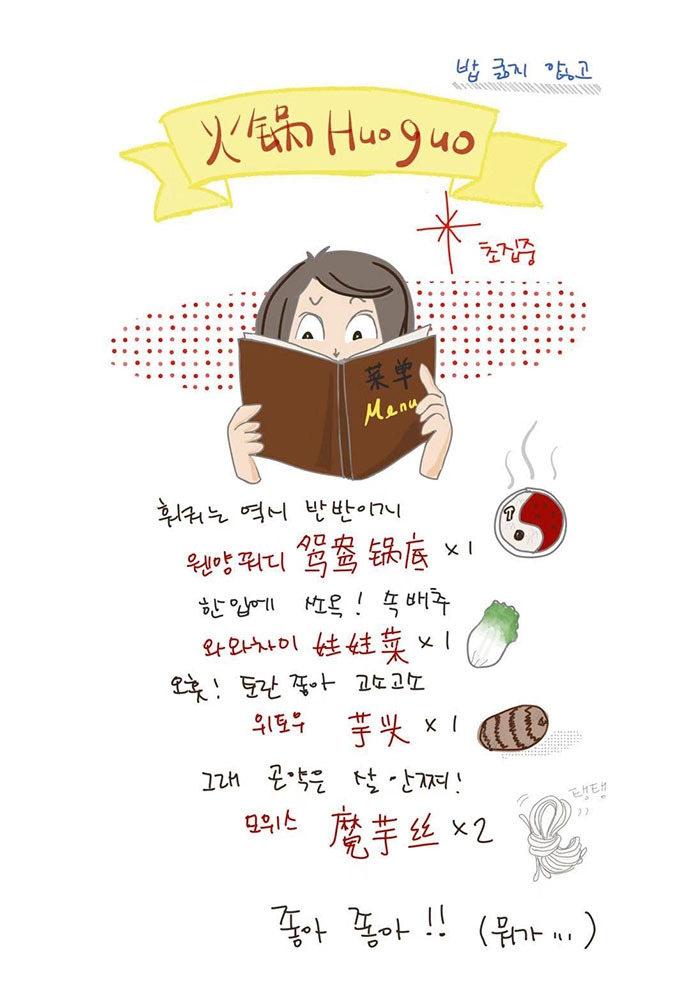 밥 굶지 않고
火锅 Huoguo
초집중
菜单
Menu
훠궈는 역시 반반이지
웬양꿔디 鸳鸯锅底 x1
한입에 쏘옥! 속배추
와와차이 娃娃菜 x1
오홋! 토란 좋아 고소고소
위토우 芋头 x1
그래 곤약은 살 안쪄!
모위스 魔芋丝 x2
탱탱
좋아 좋아!! (뭐가...)